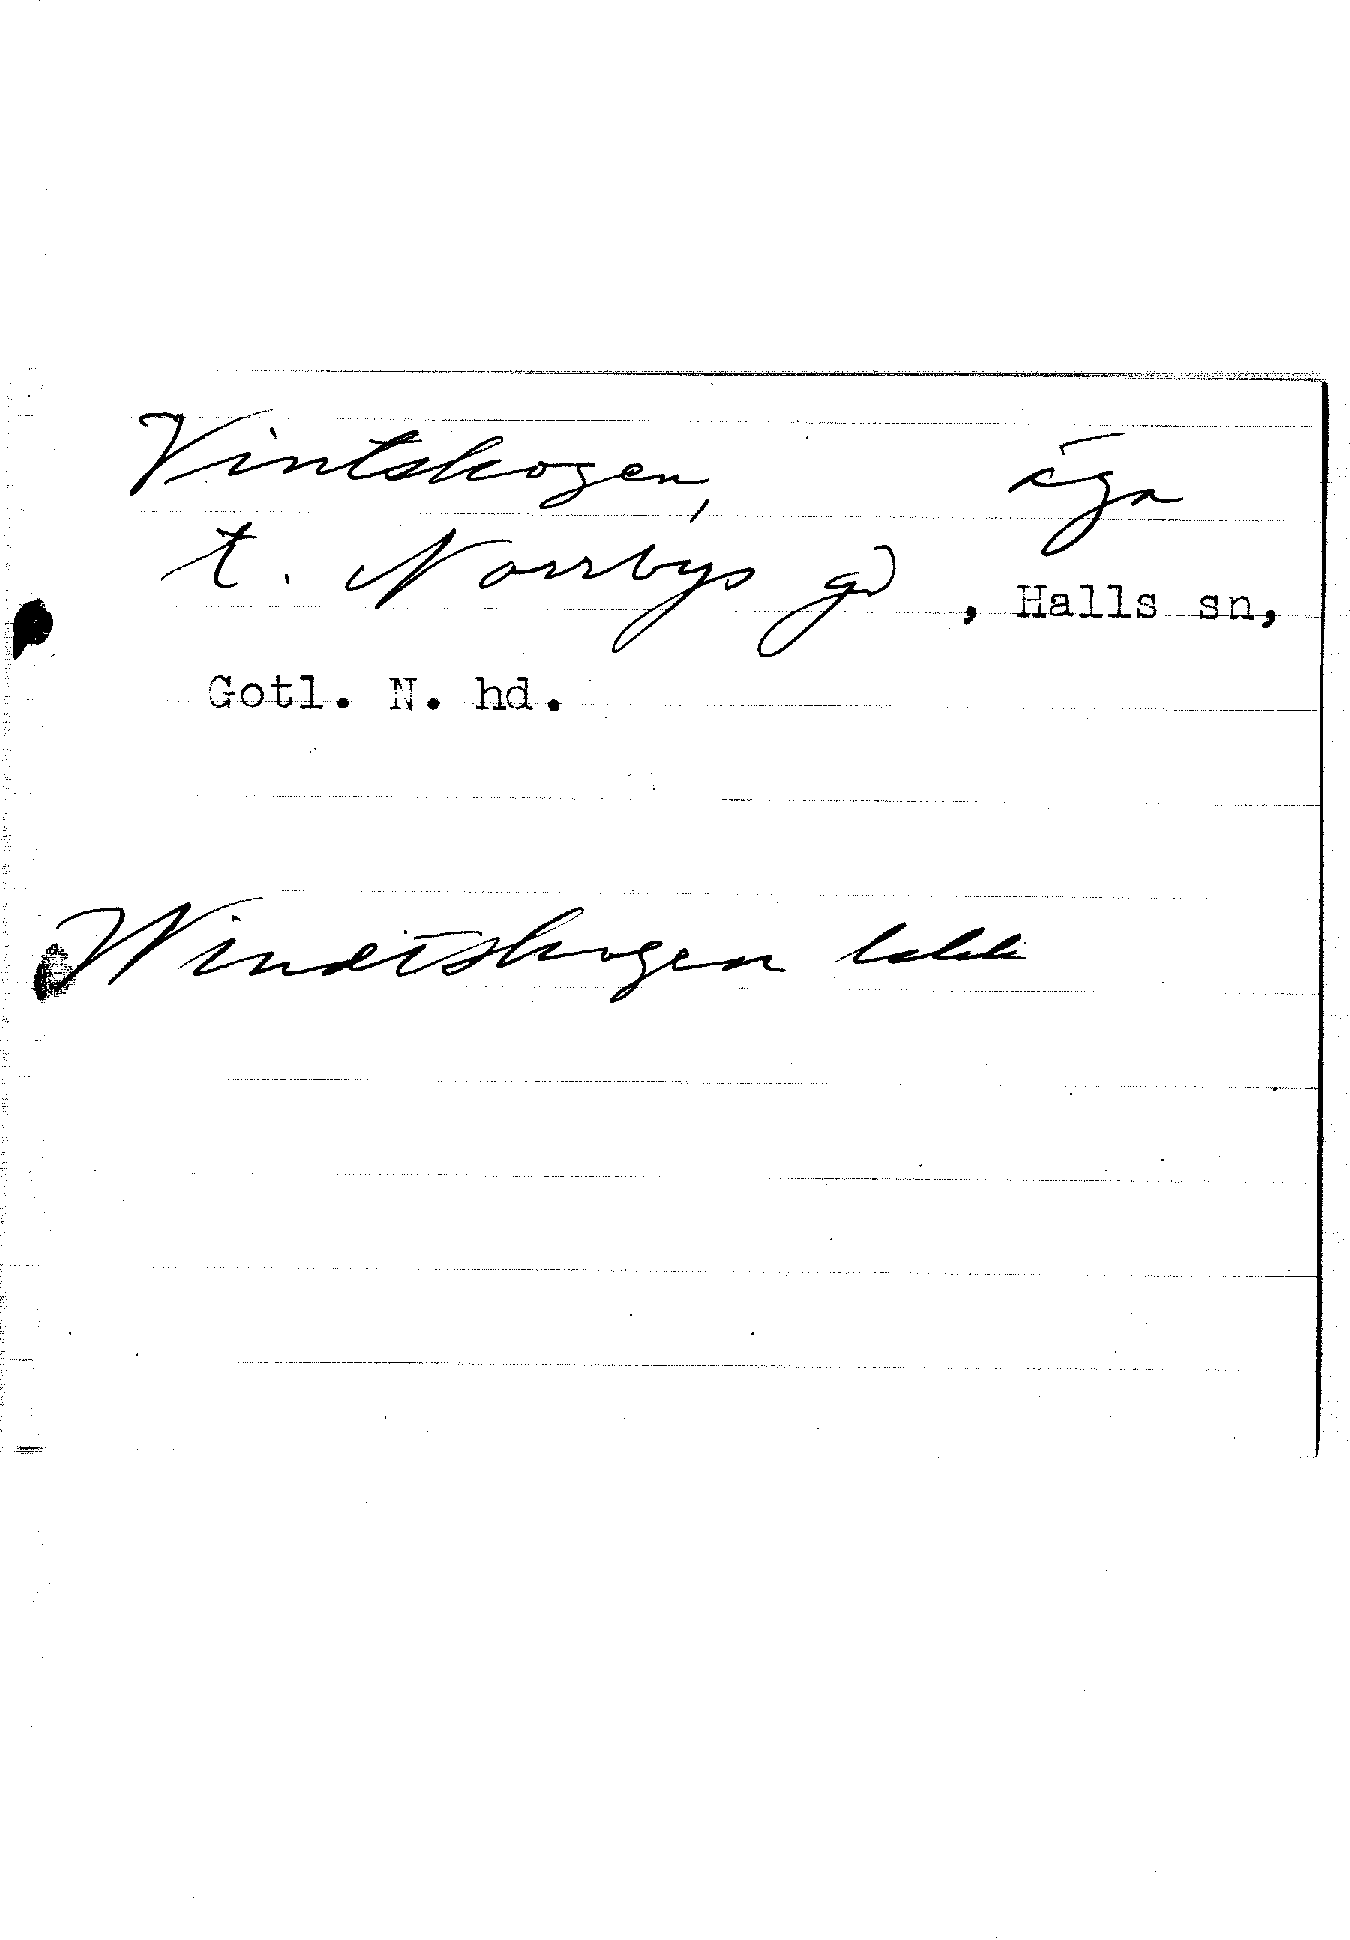 Vintskogen, äga
t. Norrbys gd, Halls sn,
Gotl. N. hd.
Windtskogen